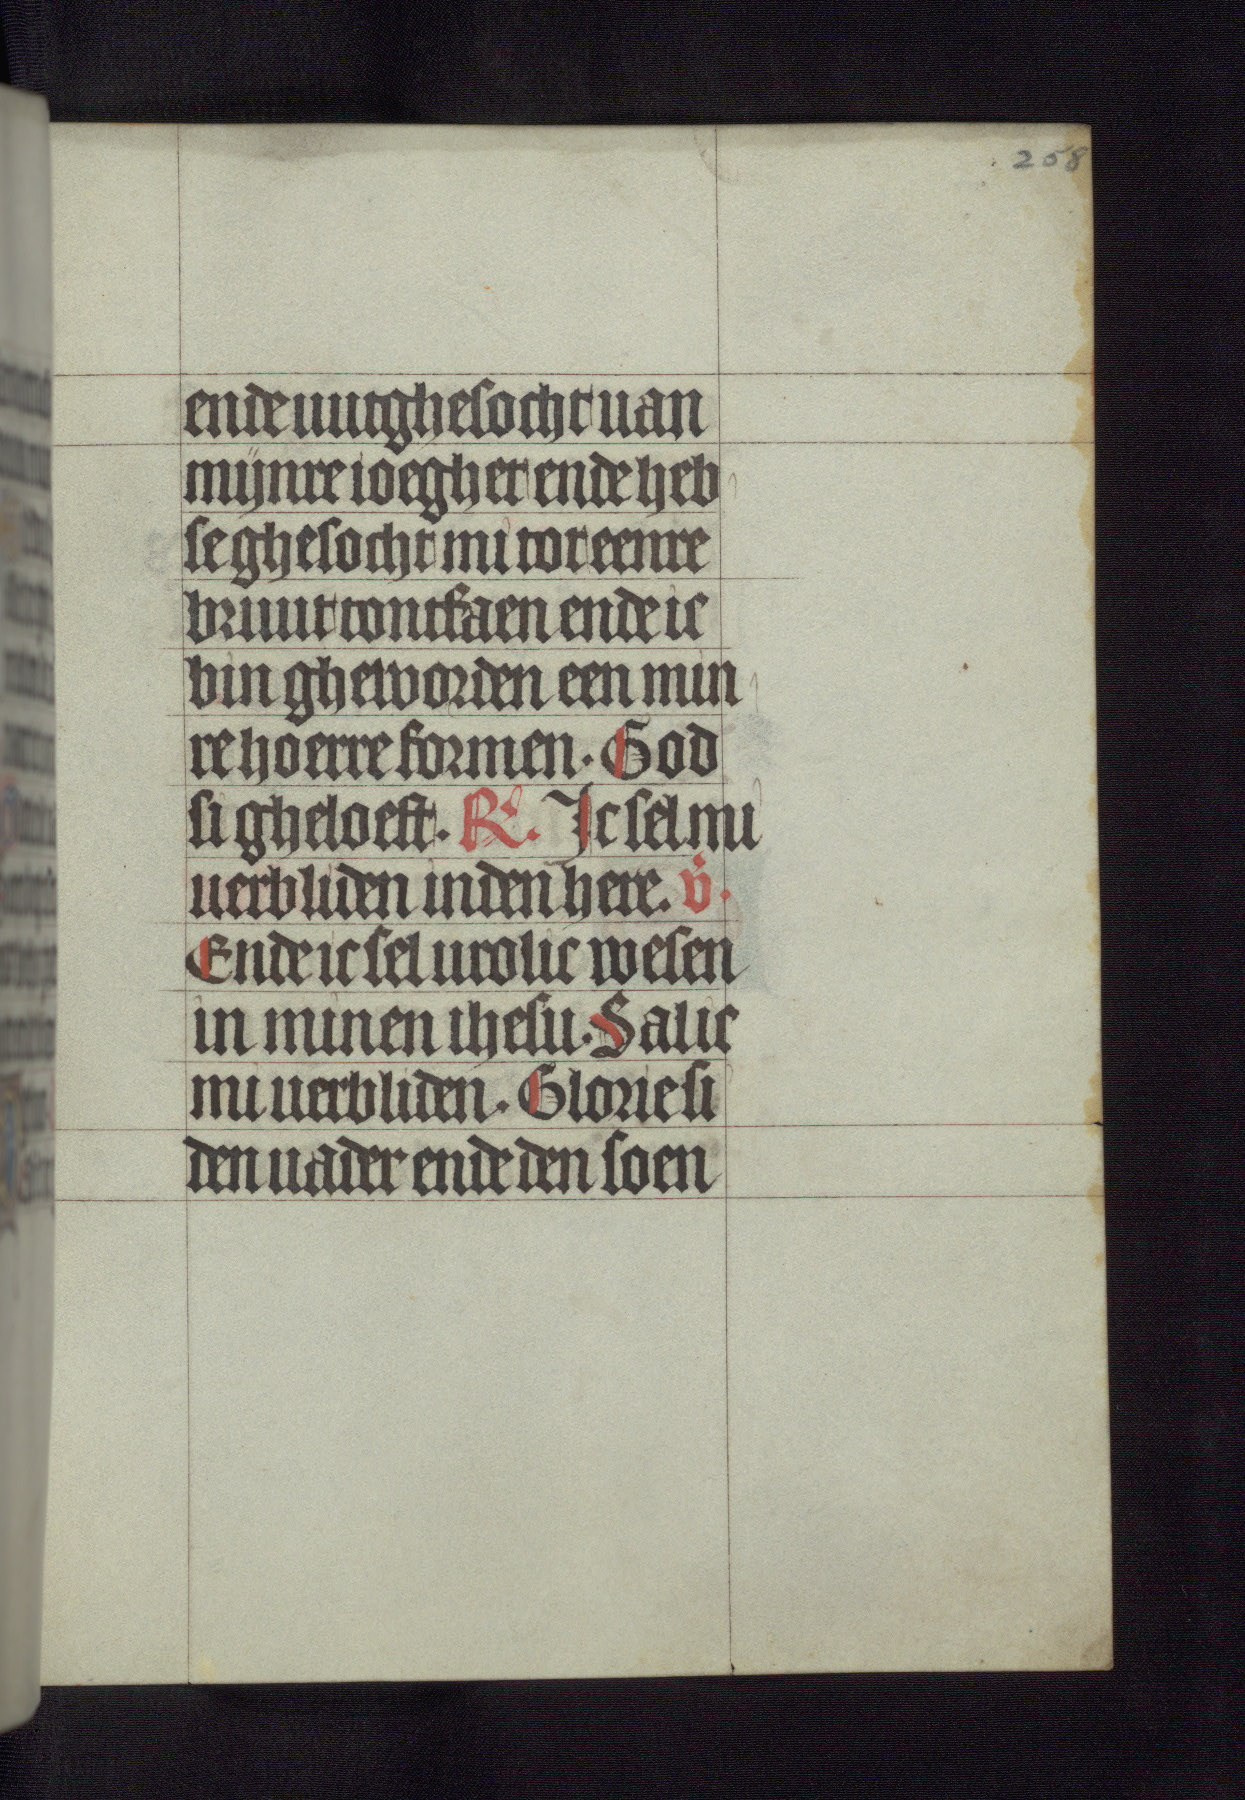 258
ende uutghesocht uan
mijnre ioeghet ende heb
se ghesocht mi tot eenre
bruut tontfaen ende ic
bin gheworden een min
re hoerre formen. God
si gheloeft. R. Ic sel mi
uerbliden in den here. V.
Ende ic sel urolic wesen
in minen ihesu. Sal ic
mi uerbliden. Glorie si
den uader ende den soen